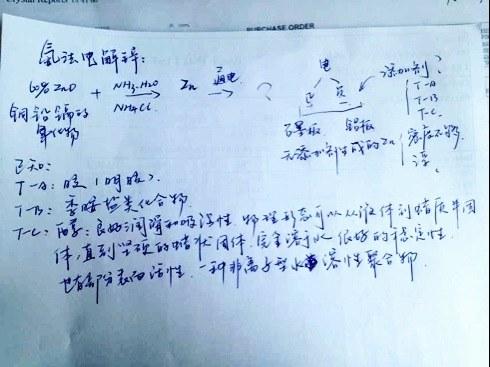 PURCHASE ORDER
氨法电解锌:
60% ZnO + NH3·H2O Zn 通电 ?
NH4Cl
铜铅镉的
氧化物
电
添加剂?
T-A
T-B
T-C
石墨板 铝板
无添加剂生成的Zn
密度不够
浮
已知:
T-A: 胶(明胶)
T-B: 季胺盐类化合物
T-C: 醇: 良好润滑和吸湿性, 物理形态可以从液体到蜡质半固
体, 直到坚硬的蜡状固体, 完全溶于水, 很好的稳定性,
也有部分表面活性, 一种非离子型水溶性聚合物